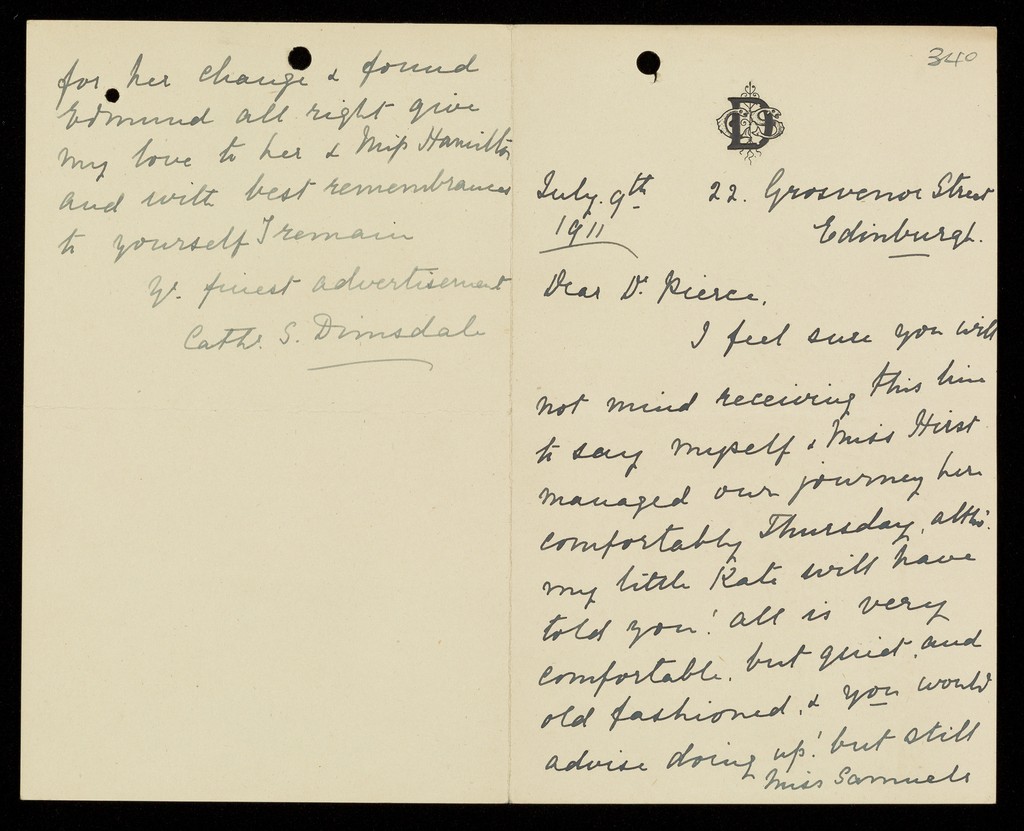 340
July. 9th 22. Grosvenor Street
1911 Edinburgh.
Dear Dr. Pierce,
I feel sure you will
not mind receiving this line
to say myself & Miss Hirst
managed our journey here
comfortably Thursday, altho'.
my little Kate will have
told you! all is very
comfortable. but quiet, and
old fashioned. & you would
advise doing up! but still
Miss Samuels
for her change & found
Edmund all right give
my love to her & Miss Hamilton
and with best remembrances
to yourself I remain
Yr. finest advertisement
Cath. S. Dimsdale